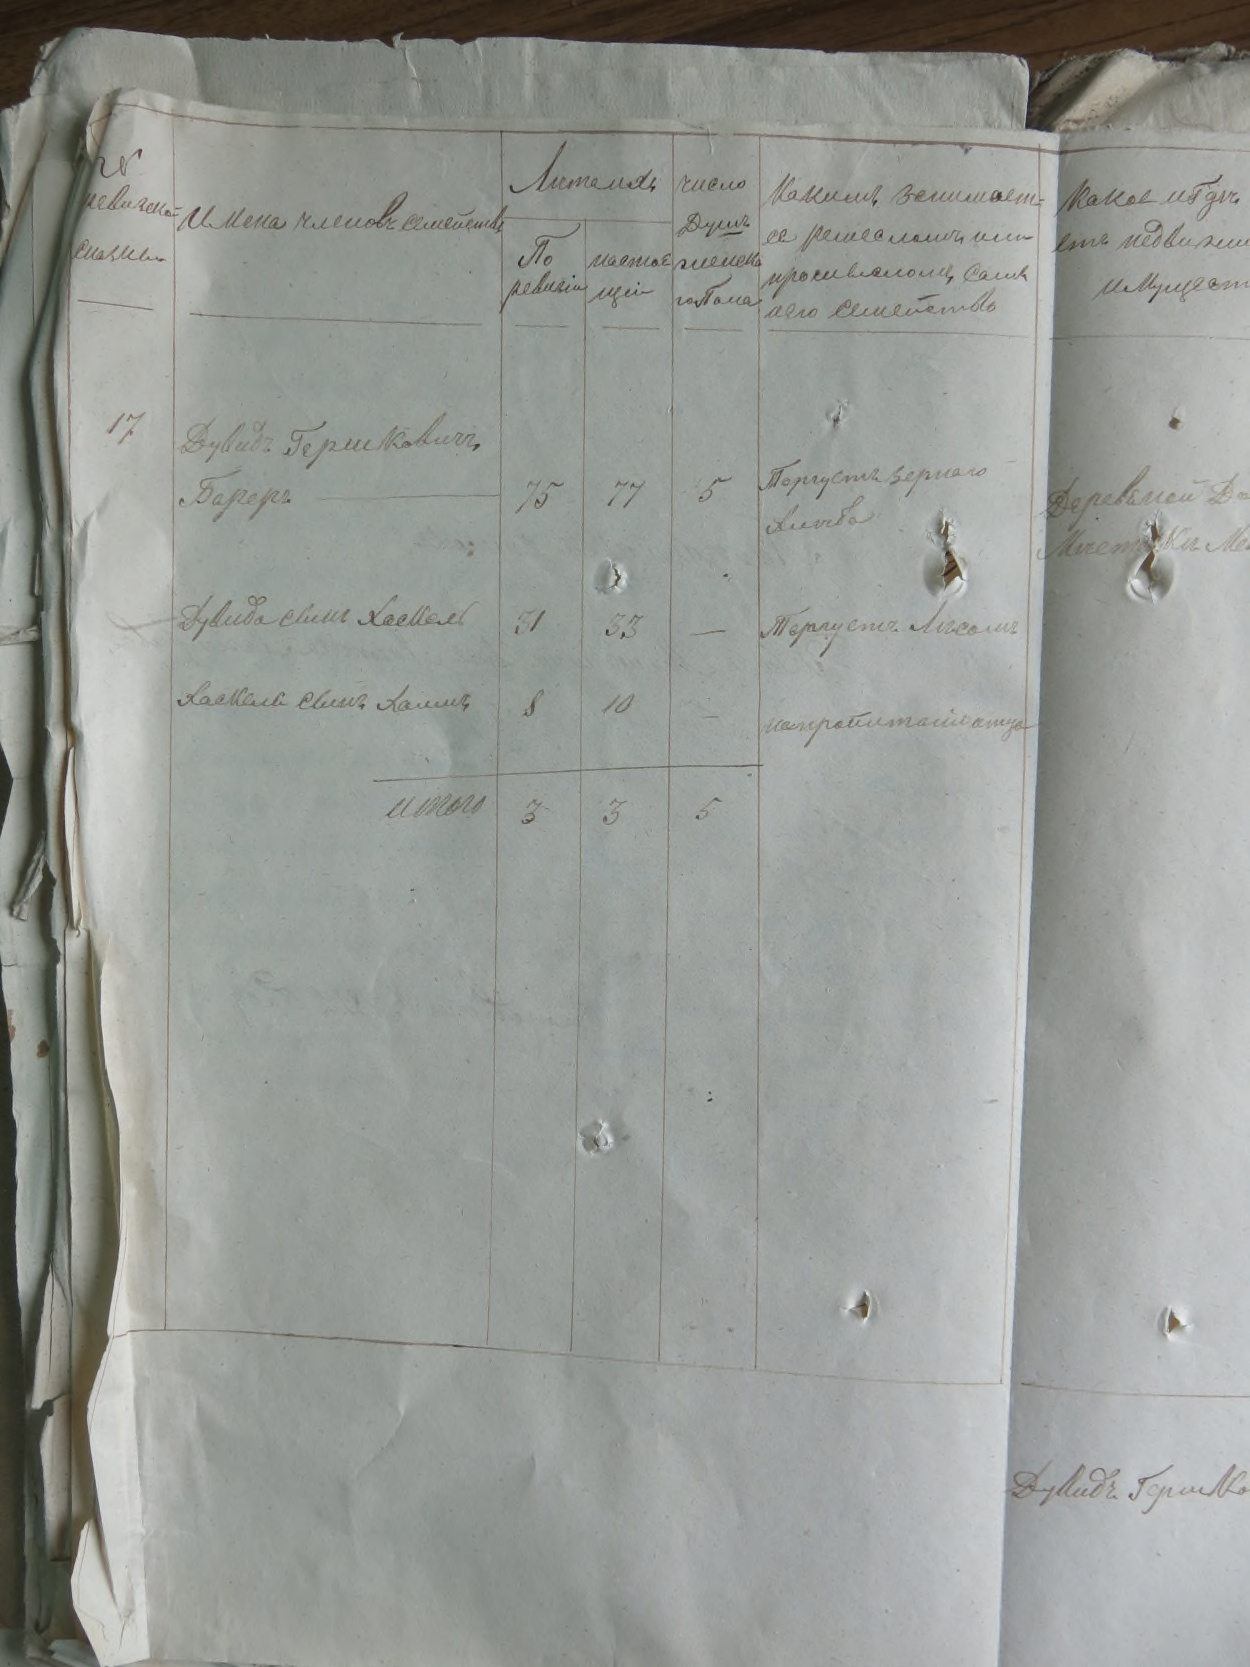 №
ревизской
сказки
Имена членовъ семействъ
Лѣтамъ
По
ревизіи
настоя
щіи
число
Душъ
женска
го Пола
Какимъ Занимает=
ся ремесломъ или
промысломъ, Самъ
и его семейство
Какое и гдѣ
етъ недвижи
имущест
17
Дувидъ Гершковичъ
Бареръ
75
77
5
Торгуетъ зерного
хлѣба
Деревяной До
Мѣстечки Ме
Дувида сынъ Хаскель
31
33
—
Торгуетъ Лѣсомъ
Хаскеля сынъ Хаимъ
8
10
—
на пропитаніи отца
Итого
3
3
5
Дувидъ Гершко